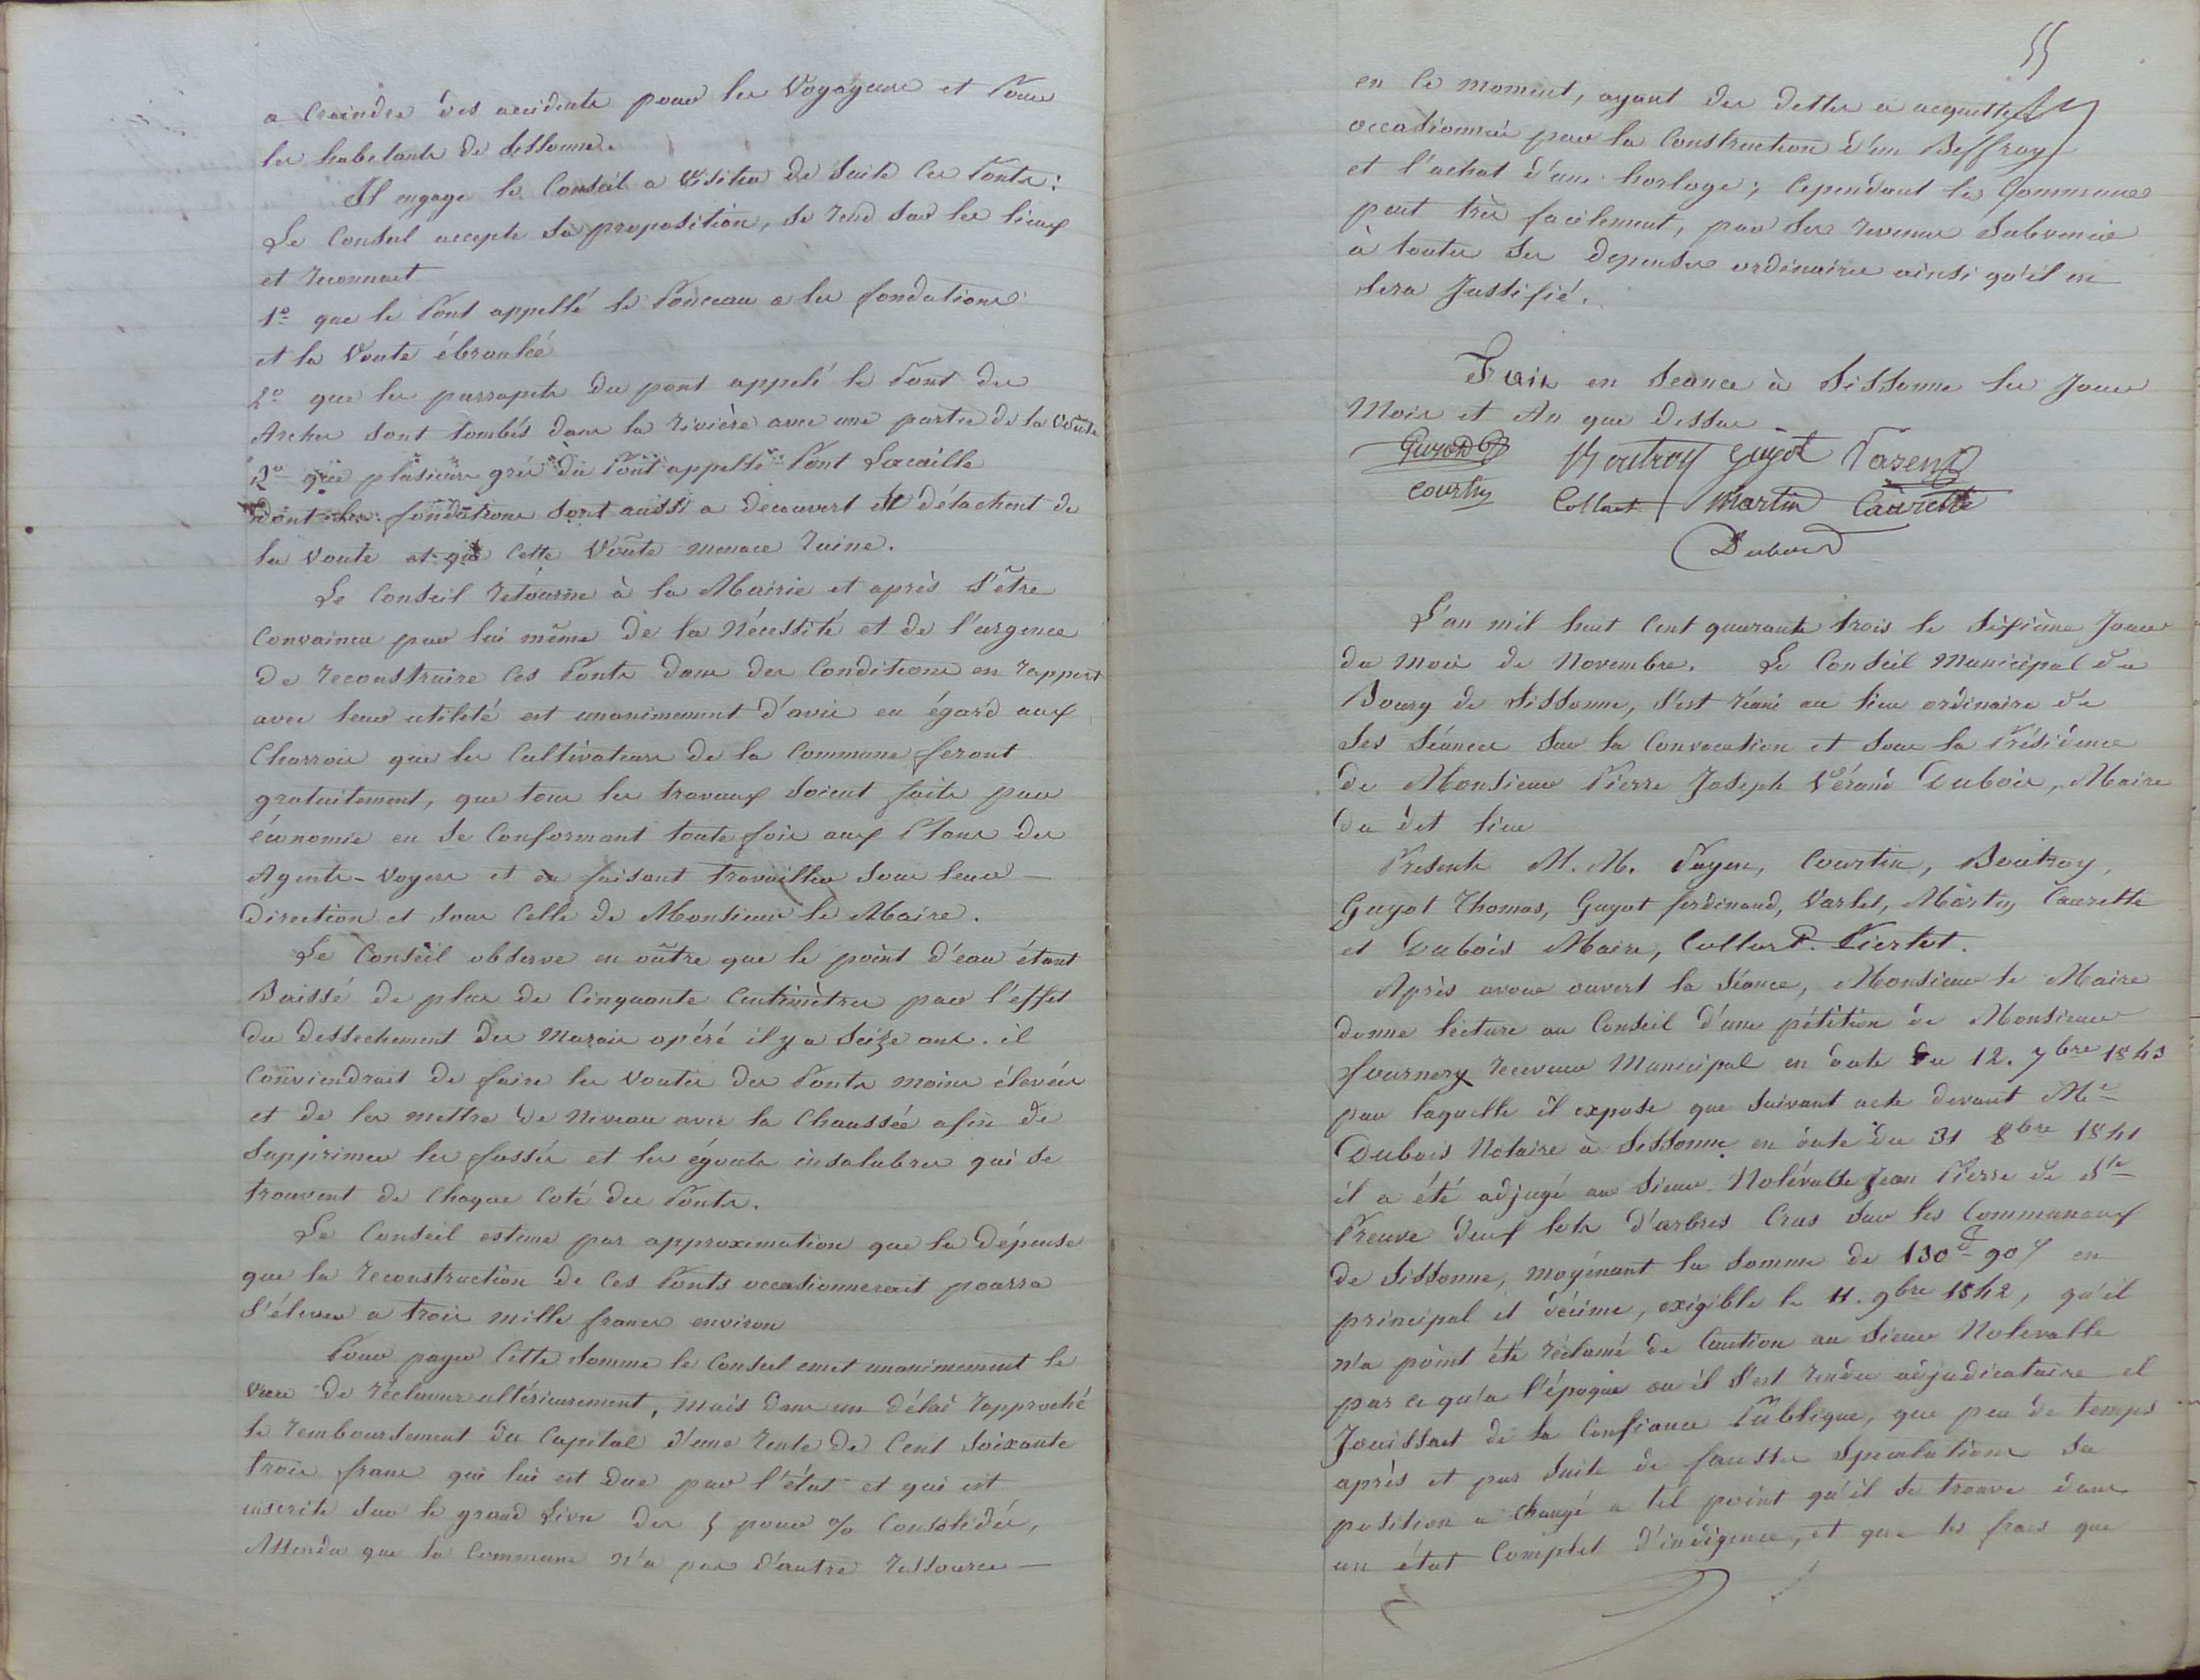 a Craindre des accidents pour les Voyageurs et Pour
les habitants de Sissonne.
Il engage le Conseil a visiter de suite ces Ponts :
Le Conseil accepte sa proposition, se rend sur les lieux
et reconnait
1º que le Pont appellé le Ponceau a les fondations
et la Voute ébranlée
2º que les parrapets du pont appelé le Pont des
Arches sont tombés dans la rivière avec une partie de la voûte
3º que plusieurs grès du Pont appellé Pont Lacaille
dont les fondations sont aussi a decouvert se détachent de
la voute et que cette Voûte menace ruine.
Le Conseil retourne à la Mairie et après s'être
Convaincu par lui même de la Nécessité et de l'urgence
de reconstruire ces Ponts dans des Conditions en rapport
avec leur utilité est unanimement d'avis eu égard aux
Charrois que les Cultivateurs de la Commune feront
gratuitement, que tous les travaux soient faits par
économie en se Conformant toute fois aux Plans des
Agents-Voyers et en faisant travailler sous leur
direction et sous Celle de Monsieur le Maire.
Le Conseil observe en oûtre que le point d'eau étant
Baissé de plus de Cinquante Centimètres par l'effet
du dessechement des Marais opéré il y a Seize ans. il
Conviendrait de faire les voutes des Ponts moins élevées
et de les mettre de Niveau avec la Chaussée afin de
Supprimer les fossés et les égouts insalubres qui se
trouvent de Chaque Coté des Ponts.
Le Conseil estime par approximation que la dépense
que la reconstruction de Ces Ponts occasionnerait pourra
s'élever a trois mille francs environ
Pour payer Cette somme le Conseil emet unanimement le
vœu de réclamer ultérieurement, mais dans un délai rapproché
le remboursement du Capital d'une rente de Cent soixante
trois francs qui lui est due par l'état et qui est
inscrite sur le grand Livre des 5 pour % Consolidés,
Attendu que la Commune n'a pas d'autre ressource
55
en ce moment, ayant des dettes a acquitter
occasionnées par la Construction d'un Beffroy
et l'achat d'une horloge ; Cependant la Commune
peut très facilement, par ses revenus Subvenir
à toutes ses dépenses ordinaires ainsi qu'il en
sera Justifié.
Fait en séance à Sissonne les Jour
Mois et An que dessus
Boutroy Guyot
Courtin Collart Martin Caurette
Dubois
L'an mil huit Cent quarante trois le Sixième Jour
du mois de Novembre. Le Conseil Municipal du
Bourg de Sissonne, s'est réuni au lieu ordinaire de
ses séances sur la Convocation et sous la Présidence
de Monsieur Pierre Joseph Vérand Dubois, Maire
du dit lieu
Présents M. M. Payen, Courtin, Boutroy,
Guyot Thomas, Guyot ferdinand, Varlet, Martin, Caurette
et Dubois Maire, Collart.
Après avoir ouvert la séance, Monsieur le Maire
donne lecture au Conseil d'une pétition de Monsieur
fournery receveur Municipal en date du 12. 7bre 1843
par laquelle il expose que suivant acte devant Me
Dubois Notaire à Sissonne en date du 31 8bre 1841
il a été adjugé au Sieur Nolévalle Jean Pierre de Ste
Preuve deux lots d'arbres Crus sur les Communaux
de Sissonne, moyénant la somme de 130f 90c en
principal et décime, exigible le 11. 9bre 1842, qu'il
n'a point été réclamé de Caution au Sieur Nolevalle
par ce qu'a l'époque ou il s'est rendu adjudicataire il
Jouissait de la Confiance Publique, que peu de temps
après et par suite de fausses Spéculations sa
position a Changé a tel point qu'il se trouve dans
un état Complet d'indigence, et que les frais que